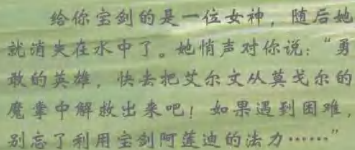 给你宝剑的是一位女神，随后她
就消失在水中了。她悄声对你说：“勇
敢的英雄，快去把艾尔文从莫戈尔的
魔掌中解救出来吧！如果遇到困难，
别忘了利用宝剑阿莲迪的法力……”